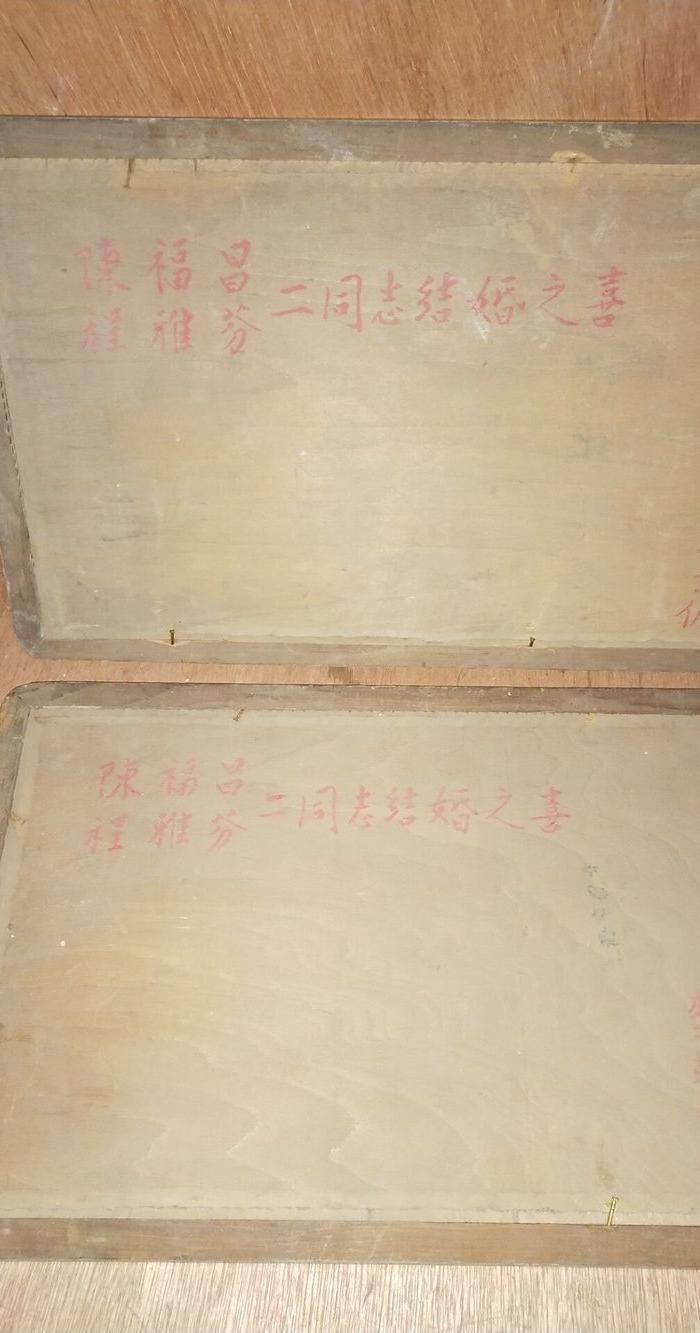 陳福昌
程雅芬
二同志結婚之喜
陳福昌
程雅芬
二同志結婚之喜